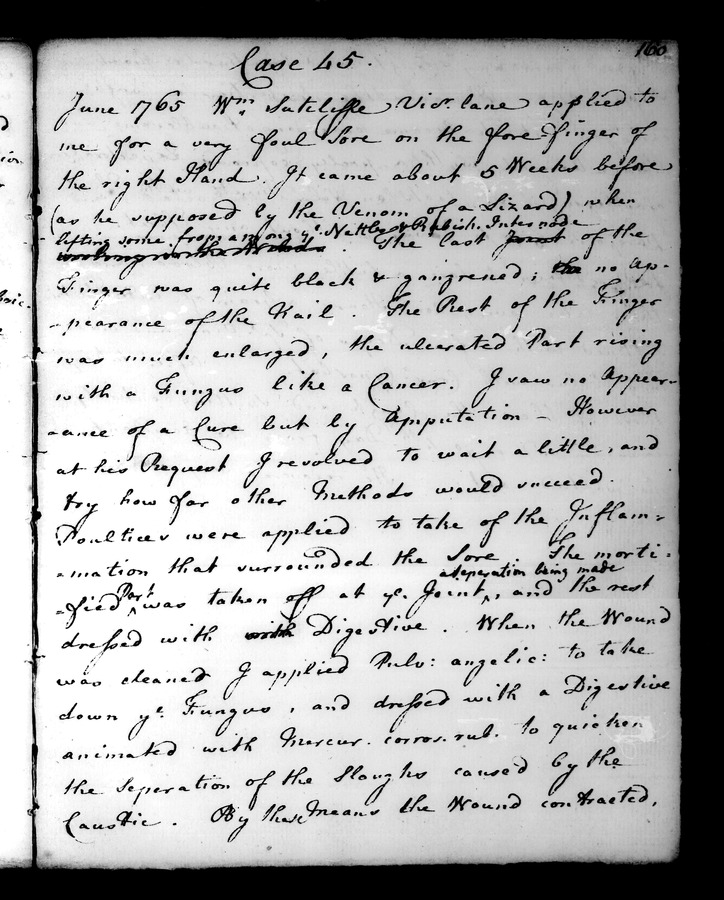 160
Case 45.
June 1765 Wm. Sutcliffe Vicr. lane applied to
me for a very foul Sore on the fore finger of
the right Hand. It came about 5 Weeks before
(as he supposed by the Venom of a Lizard) when
lifting some from among ye. Nettles & Rubish. Internode
. The last Joint of the
Finger was quite black & gangrened; the no Ap-
-pearance of the Nail. The Rest of the Finger
was much enlarged, the ulcerated Part rising
with a Fungus like a Cancer. I saw no Appear-
-ance of a Cure but by Amputation - However
at his Request I resolved to wait a little, and
try how far other Methods would succeed.
Poultices were applied to take of the Inflam-
-mation that surrounded the Sore. The morti-
a Seperation being made
-fied Part was taken off at ye. Joint, and the rest
dressed with with Digestive. When the Wound
was cleaned I applied Pulv: angelic: to take
down ye. Fungus, and dressed with a Digestive
animated with Mercur. corros. rub. to quicken
the Seperation of the Sloughs caused by the
Caustic. By these Means the Wound contracted,